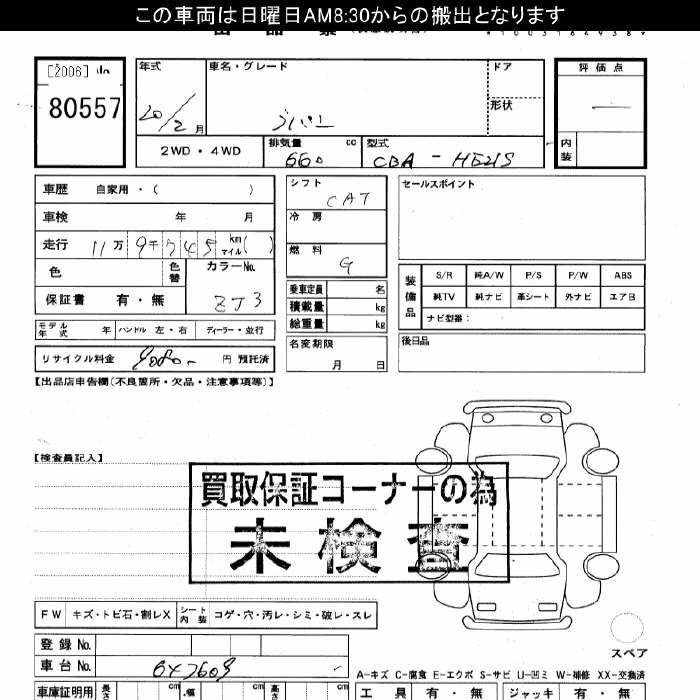 この車両は日曜日AM8:30からの搬出となります
[2006]
80557
年式
20/2月
車名・グレード
ラパン
ドア
形状
評価点
内装
2WD・4WD
排気量 660 cc
型式 CBA-HE21S
車歴 自家用・( )
車検 年 月
走行 11万9千745 km マイル( )
色 色替 カラーNo.
ZJ3
保証書 有・無
シフト CAT
冷房
燃料 G
セールスポイント
乗車定員 名
積載量 kg
総重量 kg
装備品
S/R 純A/W P/S P/W ABS
純TV 純ナビ 革シート 外ナビ エアB
ナビ型番:
モデル年式 年 ハンドル 左・右 ディーラー・並行
名変期限
月 日
後日品
リサイクル料金 円 預託済
【出品店申告欄(不良箇所・欠品・注意事項等)】
【検査員記入】
買取保証コーナーの為
未検査
FW キズ・トビ石・割レX シート内装 コゲ・穴・汚レ・シミ・破レ・スレ
スペア
登録No.
車台No.
A-キズ C-腐食 E-エクボ S-サビ U-凹ミ W-補修 XX-交換済
車庫証明用 長さ cm 幅 cm 高さ cm
工具 有・無 ジャッキ 有・無